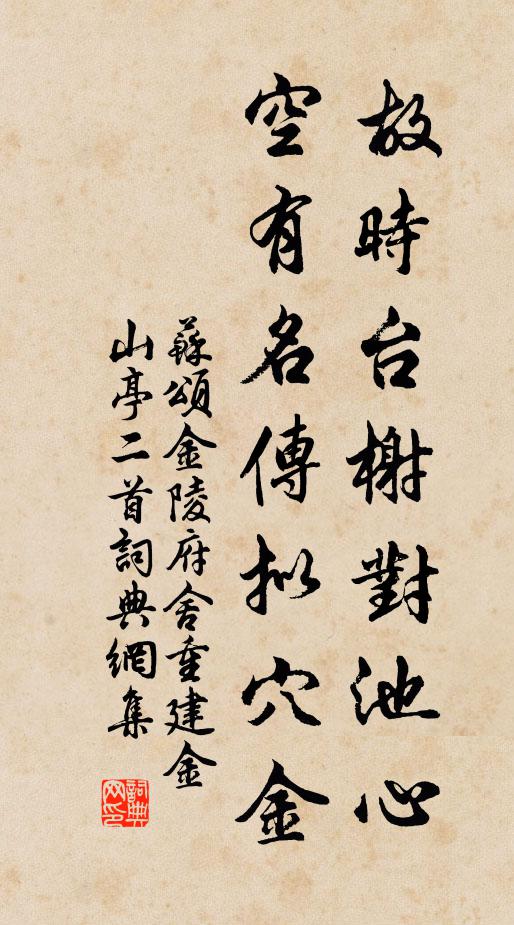 故時台榭對池心
空有名傳拟穴金
蘇頌金陵府舍重建金
山亭二首詞典網集
詞典
网印